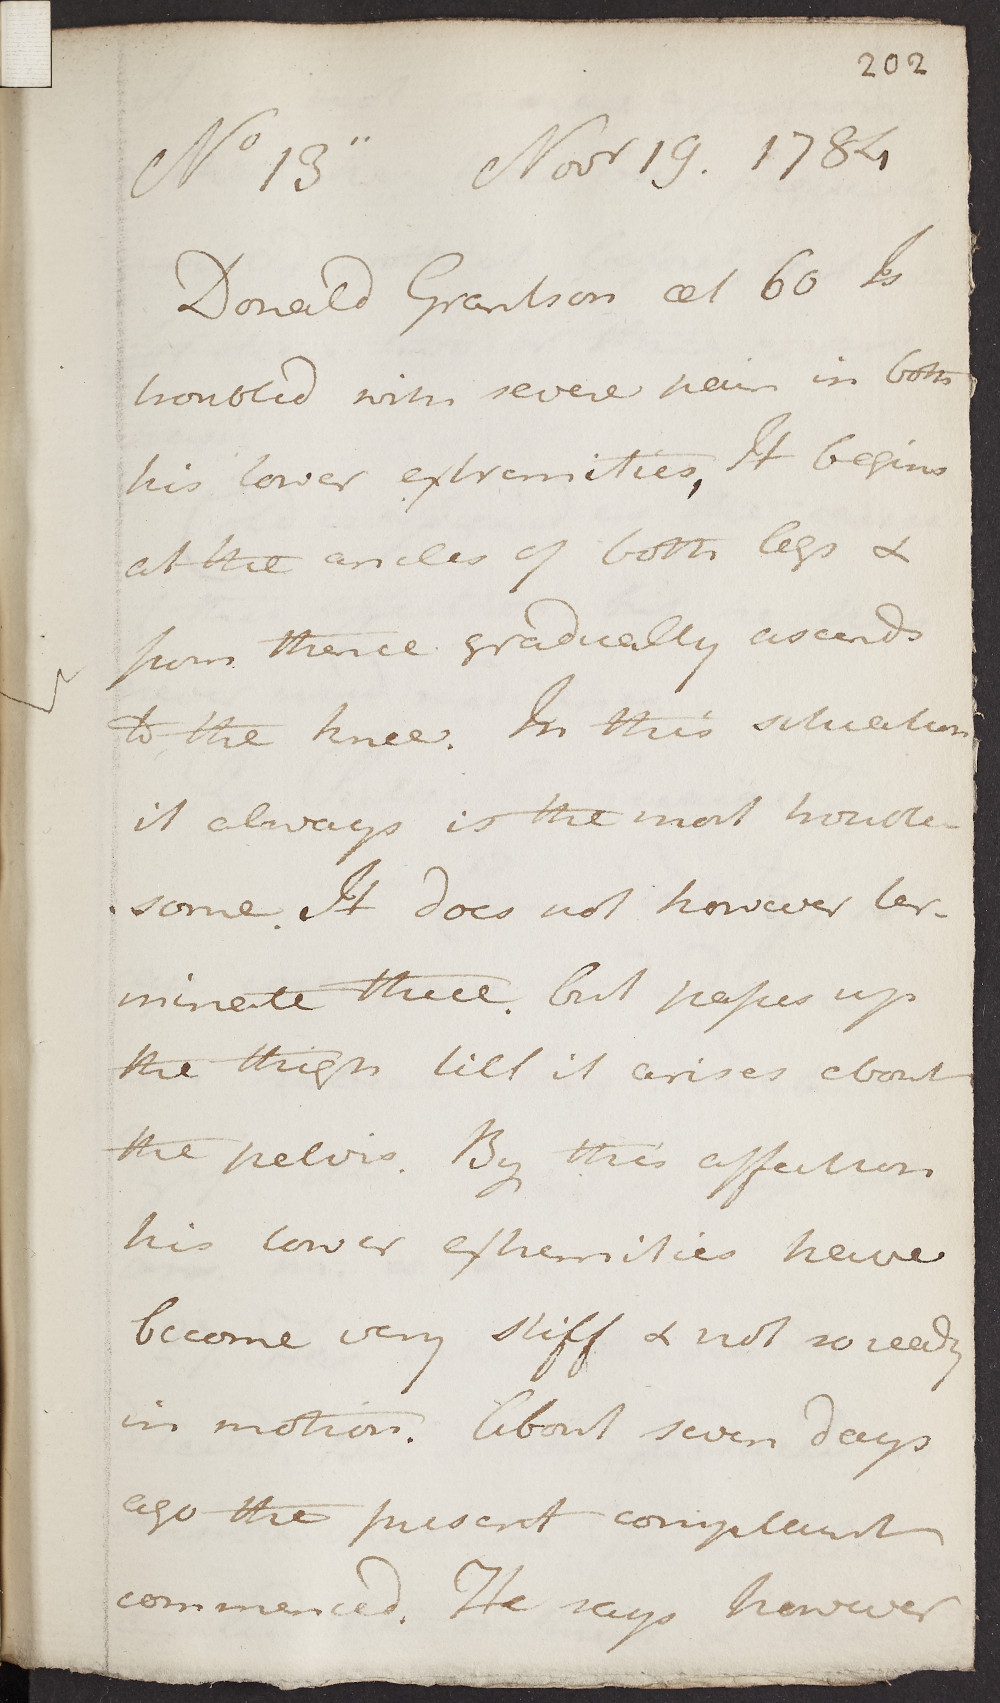 202
No 13" Novr 19. 1784
Donald Grantson æt 60 Is
troubled with severe pain in both
his lower extremities, It begins
at the ancles of both legs &
from thence gradually ascends
to the knee. In this situation
it always is the most trouble-
some. It does not however ter-
minate there. but passes up
the thigh till it arises about
the pelvis. By this affection
his lower extremities have
become very stiff & not so ready
in motion. About seven days
ago the present complaint
commenced. He says however